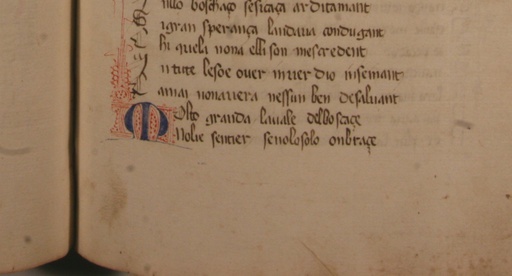 nullo boschaço sesicaça arditamant
igran sperança landaua condugant
hi queli nona elli son mescredent
n tute lesoe ouer inuer dio inseinant
amai nonauera nessun ben desaluant
Molto granda lauale delboscaçe
Nolie sentier senolosolo onbraçe